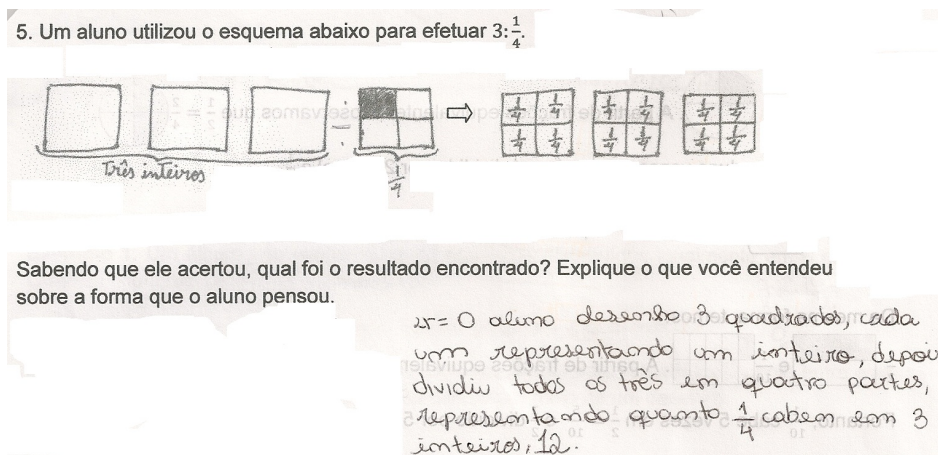 5. Um aluno utilizou o esquema abaixo para efetuar 3:1/4.
Três inteiros
1/4
1/4 1/4 1/4 1/4 1/4 1/4
1/4 1/4 1/4 1/4 1/4 1/4
Sabendo que ele acertou, qual foi o resultado encontrado? Explique o que você entendeu
sobre a forma que o aluno pensou.
r= O aluno desenho 3 quadrados, cada
um representando um inteiro, depoi
dividiu todos os três em quatro partes,
representando quanto 1/4 cabem em 3
inteiros, 12.